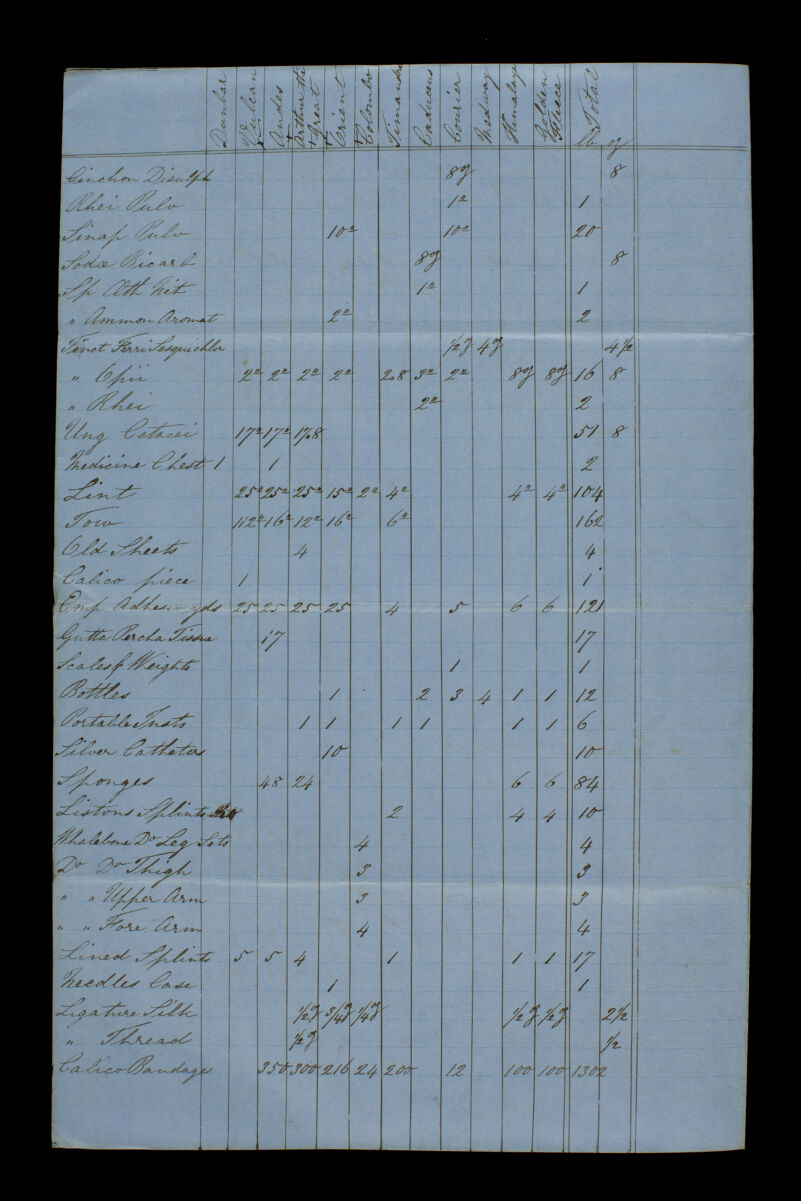 Dunbar Vulcan Andes Arthur the Great Orient Colombo Timandra Caduceus Courier Medway Himalaya Golden Fleece Total
lb oz
Cinchon Disulph 8℥ 8
Rhei Pulv 1lb 1
Sinap Pulv 10lb 10lb 20
Sodæ Bicarb 8℥ 8
Sp Æth Nit 1lb 1
" Ammon Aromat 2lb 2
Tinct Ferri Sesquichlor ½℥ 4℥ 4½
" Opii 2lb 2lb 2lb 2lb 2.8 3lb 2lb 8℥ 8℥ 16 8
" Rhei 2lb 2
Ung Cetacei 17lb 17lb 17.8 51 8
Medicine Chest 1 1 2
Lint 25lb 25lb 25lb 15lb 2lb 4lb 4lb 4lb 104
Tow 112lb 16lb 12lb 16lb 6lb 162
Old Sheets 4 4
Calico piece 1 1
Emp Adhesiv yds 25 25 25 25 4 5 6 6 121
Gutta Percha Tissue 17 17
Scales & Weights 1 1
Bottles 1 2 3 4 1 1 12
Portable Insts 1 1 1 1 1 1 6
Silver Catheters 10 10
Sponges 48 24 6 6 84
Listons Splints 2 4 4 10
Whalebone Do Leg Sets 4 4
Do Do Thigh 3 3
" " Upper Arm 3 3
" " Fore Arm 4 4
Lined Splints 5 5 4 1 1 1 17
Needles Case 1 1
Ligature Silk ½℥ ¾℥ ¼℥ ½℥ ½℥ 2½
" Thread ½℥ ½
Calico Bandages 350 300 216 24 200 12 100 100 1302